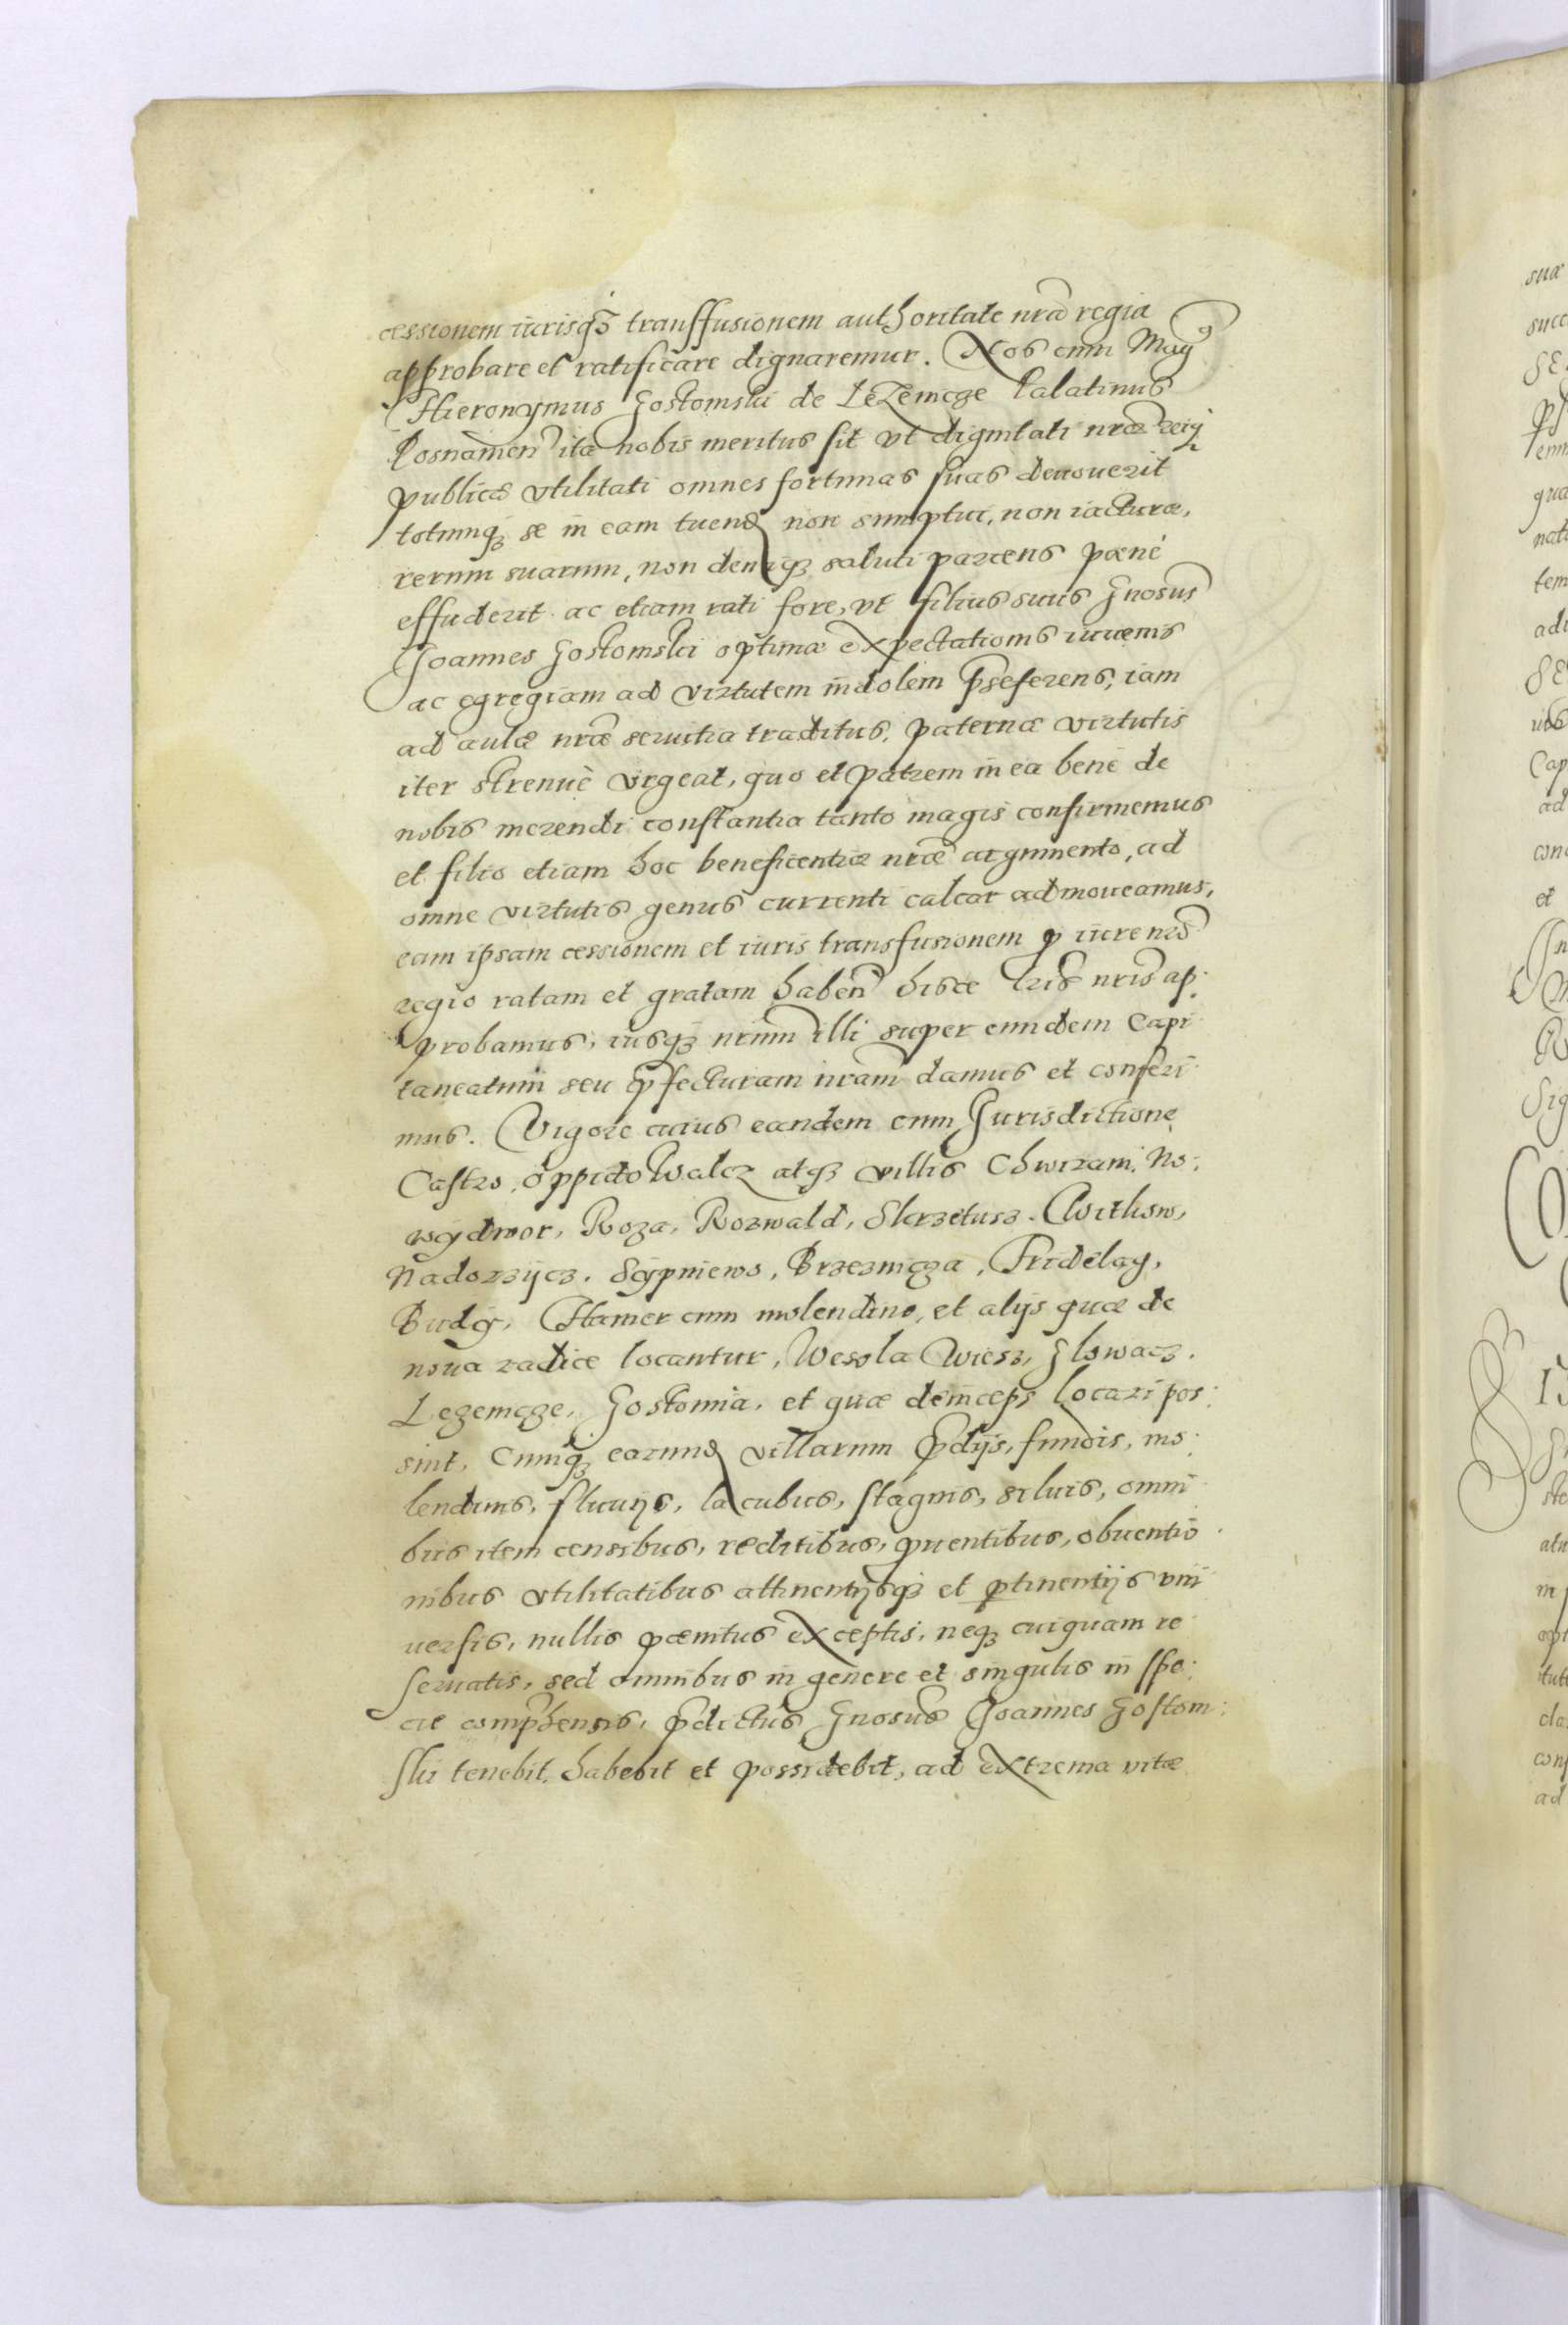 cessionem iurisq́ꝫ transffusionem authoritate nrã regia
approbare et ratificare dignaremur. Nos cum Mag
Hieronymus Gostomski de Lezemcze Palatinus
Posnamen̄ ita nobis meritus sit vt dignitati nræ reiq
publicæ vtilitati omnes fortunas suas deuouerit
totumqꝫ se in eam tuend non sumptui, non iacturæ,
rerum suarum, non deniqꝫ saluti parcens pœnè
effuderit ac etiam rati fore, vt filius suus Gnosus
Joannes Gostomski optimæ expectationis iuuenis
ac egregiam ad virtutem indolem p̃seferens, iam
ad aulæ nræ seruitia traditus, paternæ virtutis
iter strenuè vrgeat, quo et patrem in ea bene de
nobis merendi constantia tanto magis confirmemus
et filio etiam hoc beneficentiæ nræ argumento, ad
omne virtutis genus currenti calcar admoueamus,
eam ipsam cessionem et iuris transfusionem ꝓ iure nr̃o
regio ratam et gratam haben̄ hisce lr̃is nr̃is ap:
probamus, iusqꝫ nr̃um illi super eundem Capi
taneatum seu p̃fecturam nr̃am damus et conferi
mus. Vigore cuius eandem cum Jurisdictione
Castro, oppido Walcz atqꝫ villis Chwiram, No:
wydwor, Roza, Rozwald, Skrzetusz. Witkow,
Nadorzijcz. Sypniewo, Brzeznicza, Fridelag,
Budy, Hamer cum molendino, et alijs quæ de
noua radice locantur, Wesola Wiesz, Glowacz.
Lezemcze, Gostomia, et quæ deinceps locari pos:
sint, Cumqꝫ earund villarum p̃dijs, fundis, mo:
lendinis, fluuijs, lacubus, stagnis, siluis, omni
bus item censibus, reditibus, ꝓuentibus, obuentio
nibus vtilitatibus attinentijsqꝫ et ꝑtinentijs vni
uersis, nullis pœnitus exceptis, neqꝫ cuiquam re
seruatis, sed omnibus in genere et singulis in spe:
cie comp̃hensis, p̃dictus Gnosus Joannes Gostom:
ski tenebit, habebit et possidebit, ad extrema vitæ